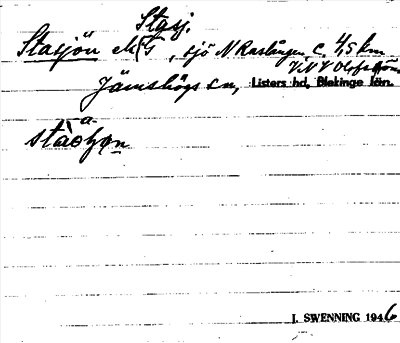 Stasj.
Stasjön , sjö N Raslången c. 4,5 km
V.N.V Olofström
Jämshögs sn, Listers hd, Blekinge län.
a
J. SWENNING 1946